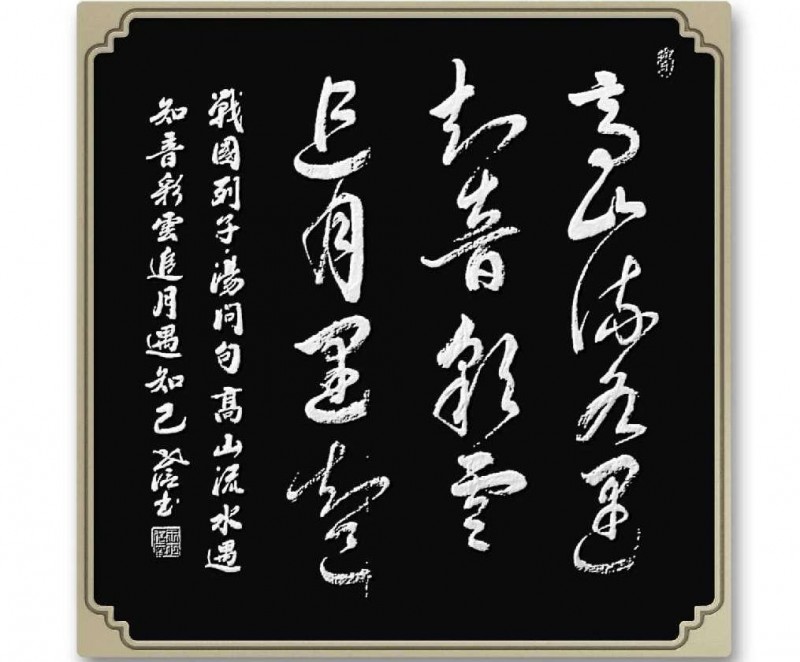 高山流水遇
知音彩雲
追月遇知己
戰國列子·湯問句高山流水遇
知音彩雲追月遇知己 書